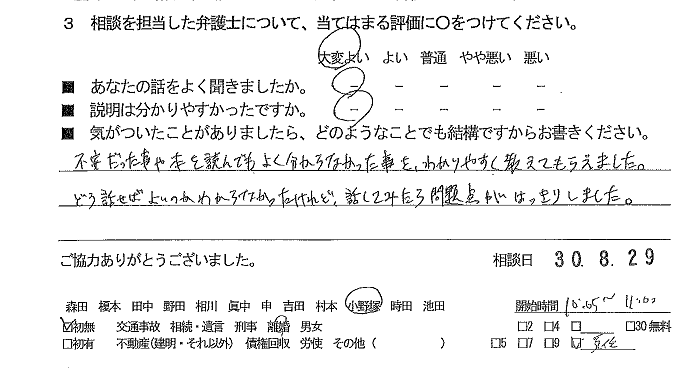 3 相談を担当した弁護士について、当てはまる評価に〇をつけてください。
大変よい よい 普通 やや悪い 悪い
■ あなたの話をよく聞きましたか。 － － － － －
■ 説明は分かりやすかったですか。 － － － － －
■ 気がついたことがありましたら、どのようなことでも結構ですからお書きください。
不安だった事や本を読んでもよく分からなかった事を、わかりやすく教えてもらえました。
どう話せばよいのかわからなかったけれど、話してみたら問題点がはっきりしました。
ご協力ありがとうございました。 相談日 30.8.29
森田 榎本 田中 野田 相川 眞中 申 吉田 村本 小野塚 時田 池田 開始時間 10:05～11:00
☑初無 交通事故 相続・遺言 刑事 離婚 男女 □2 □4 □ □30無料
□初有 不動産(建明・それ以外) 債権回収 労使 その他( ) □5 □7 □9 ☑